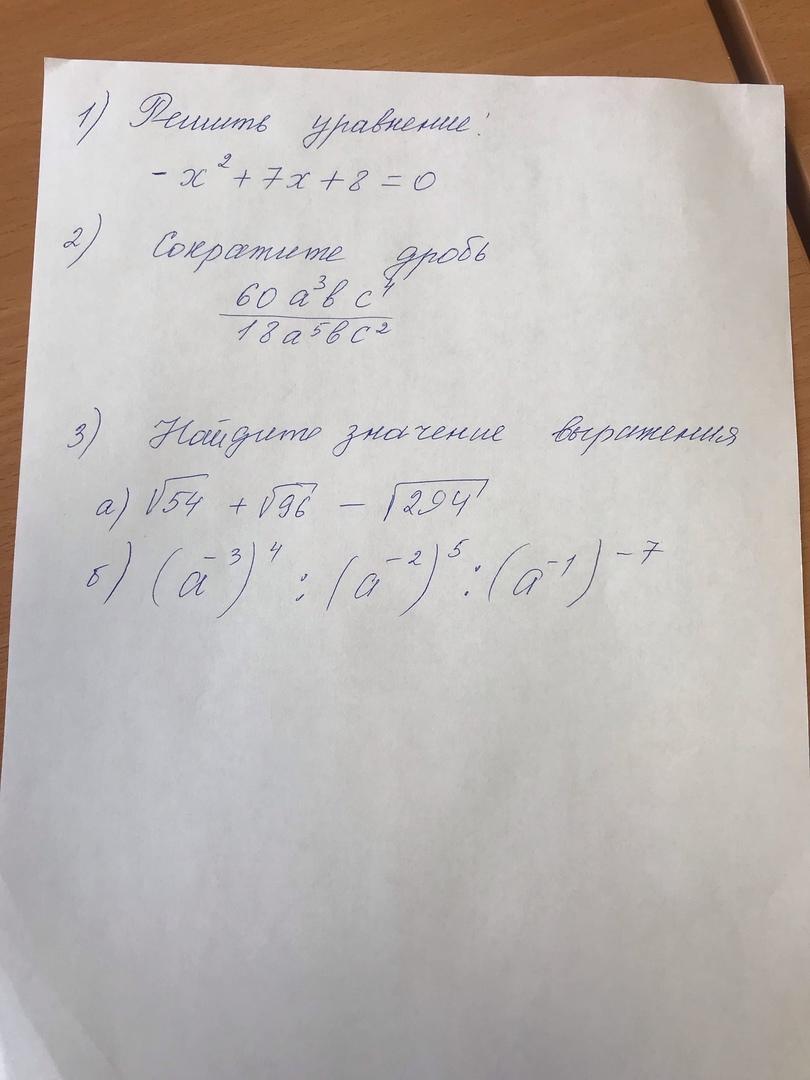 1) Решить уравнение:
- x² + 7x + 8 = 0
2) Сократите дробь
60 a³ b c⁴
18 a⁵ b c²
3) Найдите значение выражения
а) √54 + √96 - √294
б) (a⁻³)⁴ : (a⁻²)⁵ : (a⁻¹)⁻⁷